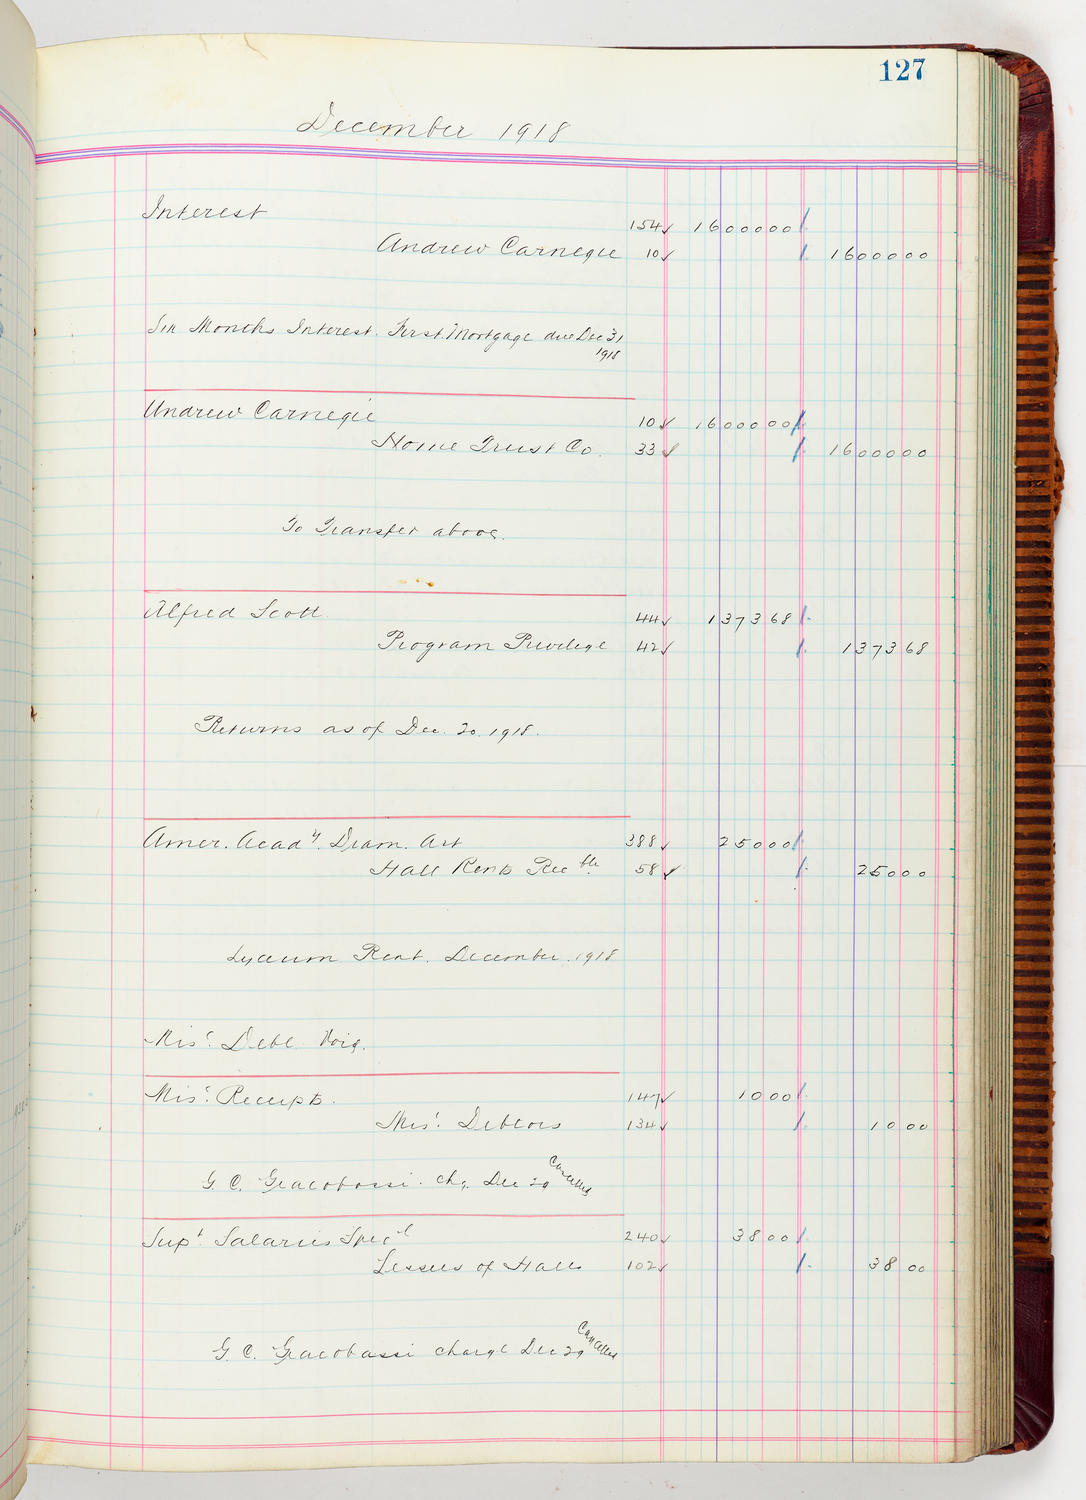 127
December 1918
Interest 154 ✓ 1600000
Andrew Carnegie 10 ✓ 1600000
Six Months Interest. First Mortgage due Dec 31
1918
Andrew Carnegie 10 ✓ 1600000
Home Trust Co. 33 ✓ 1600000
To Transfer above.
Alfred Scott. 44 ✓ 137368
Program Privilege 42 ✓ 137368
Returns as of Dec. 20. 1918.
Amer. Acady. Dram. Art 388 ✓ 25000
Hall Rents Recble. 58 ✓ 25000
Lyceum Rent. December. 1918
Misc. Debt.
Misc. Receipts. 147 ✓ 1000
Misc. Debtors 134 ✓ 1000
G. C. Giacobassi. chg. Dec 29 Cancelled
Supt. Salaries Specl 240 ✓ 3800
Lessees of Halls 102 ✓ 3800
G. C. Giacobassi charge Dec 29 Cancelled